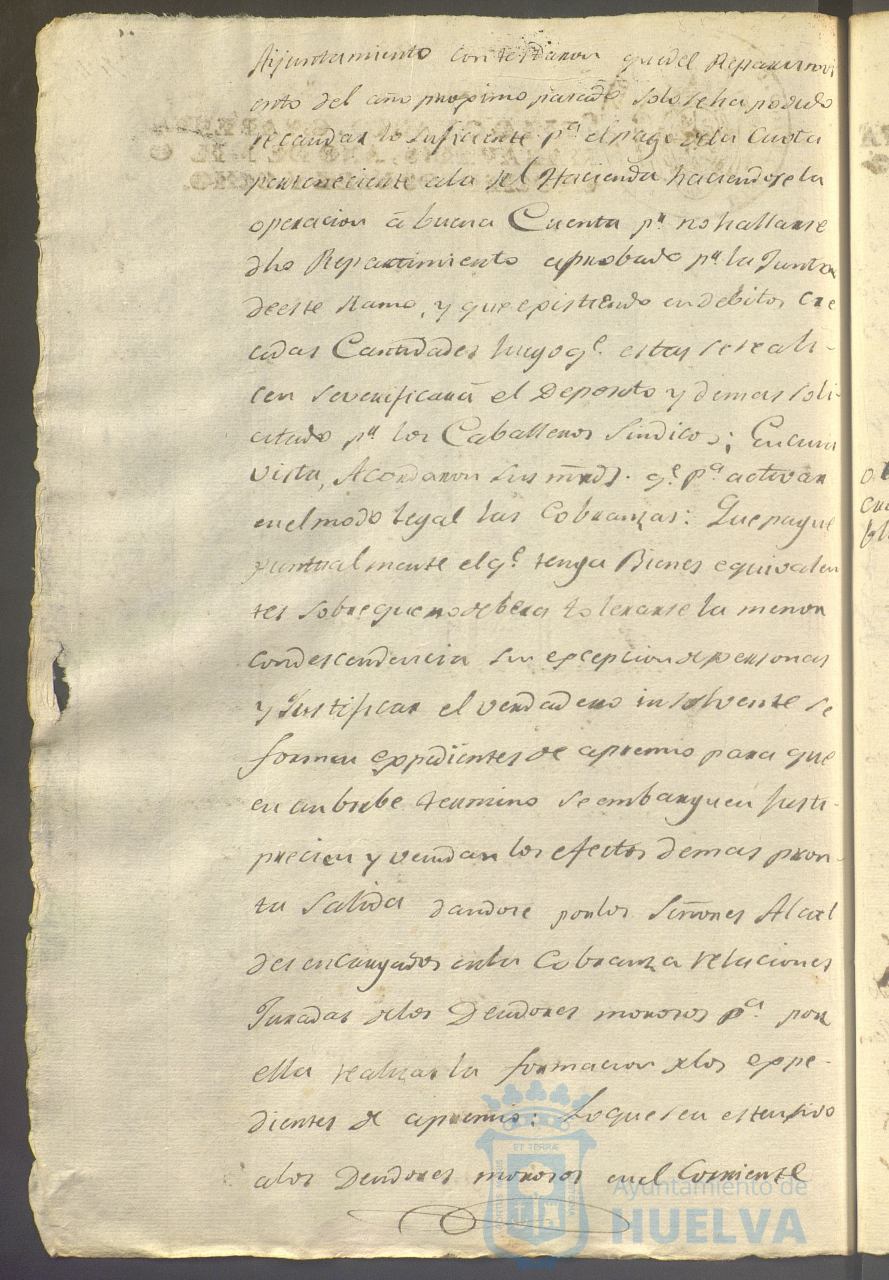 Ayuntamiento contestaron quedel Repartimi
ento del año proximo pasado solo se ha podido
recaudar lo suficiente pª. el pago dela Cuota
perteneciente ala Rl Hacienda haciendose la
operacion â buena Cuenta pr. no hallarse
dho Repartimiento aprobado pr. la Junta
deeste Ramo, y que existiendo en debitos cre
cidas Cantidades luego qe. estas se reali-
cen severificará el Deposito y demas soli-
citado pr. los Caballeros Sindicos; En cuia
vista, Acordaron sus mrds. qe. pª. activar
enel modo legal las Cobranzas: Que pague
puntualmente el qe. tenga Bienes equivalen
tes sobre que no debera tolerarse la menor
condescendencia sin excepcion de personas
y Justificar el verdadero insolvente se
formen expedientes de apremio para que
en un brebe termino se embarguen Justi-
precien y vendan los efectos demas pron-
ta salida dandose porlos Señores Alcal
des encargados enla Cobranza relaciones
Juradas delos Deudores morosos pª. por
ella realizar la formacion delos expe-
dientes de apremio: Lo que sea estensivo
alos Deudores morosos enel Corriente
ET TERRÆ
Ayuntamiento de
HUELVA